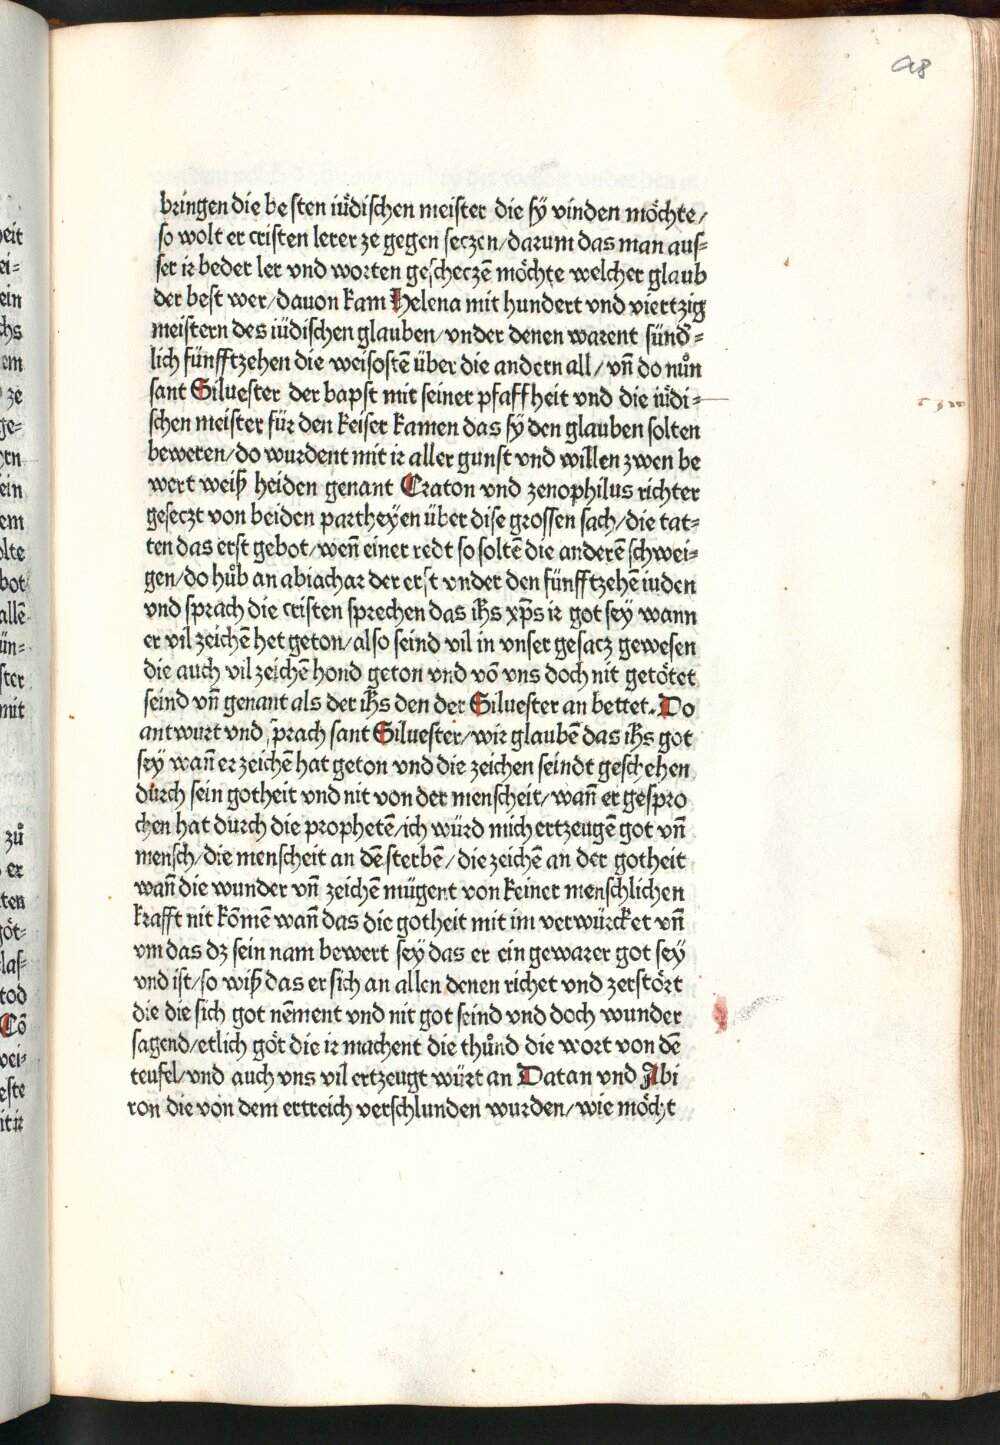 98
bringen die besten iüdischen meister die sÿ vinden möchte/
so wolt er cristen lerer ze gegen seczen/darum das man aus=
ser ir beder ler vnd worten gescheczē möchte welcher glaub
der best wer/dauon kam Helena mit hundert vnd viertzig
meistern des iüdischen glauben/vnder denen warent sünd=
lich fünfftzehen die weisostē über die andern all/vn̄ do nůn
sant Siluester der bapst mit seiner pfaffheit vnd die iüdi=
schen meister für den keiser kamen das sÿ den glauben solten
beweren/do wurdent mit ir aller gunst vnd willen zwen be
wert weiß heiden genant Craton vnd zenophilus richter
geseczt von beiden partheÿen über dise grossen sach/die tat=
ten das erst gebot/wen̄ einer redt so soltē die anderē schwei=
gen/do hůb an abiachar der erst vnder den fünfftzehē iuden
vnd sprach die cristen sprechen das ihs xp̄s ir got sey wann
er vil zeichē het geton/also seind vil in vnser gesacz gewesen
die auch vil zeichē hond geton vnd vō vns doch nit getötet
seind vn̄ genant als der ihs den der Siluester an bettet. Do
antwurt vnd sprach sant Siluester/wir glaubē das ihs got
sey wan̄ er zeichē hat geton vnd die zeichen seindt geschehen
durch sein gotheit vnd nit von der menscheit/wan̄ er gespro
chen hat durch die prophetē/ich würd mich ertzeugē got vn̄
mensch/die menscheit an dē sterbē/die zeichē an der gotheit
wan̄ die wunder vn̄ zeichē mügent von keiner menschlichen
krafft nit kōmē wan̄ das die gotheit mit im verwürcket vn̄
vm das dz sein nam bewert sey das er ein gewarer got sey
vnd ist/so wiß das er sich an allen denen richet vnd zerstört
die die sich got nēment vnd nit got seind vnd doch wunder
sagend/etlich göt die ir machent die thůnd die wort von dē
teufel/vnd auch vns vil ertzeugt würt an Datan vnd Abi
ron die von dem ertreich verschlunden wurden/wie möcht